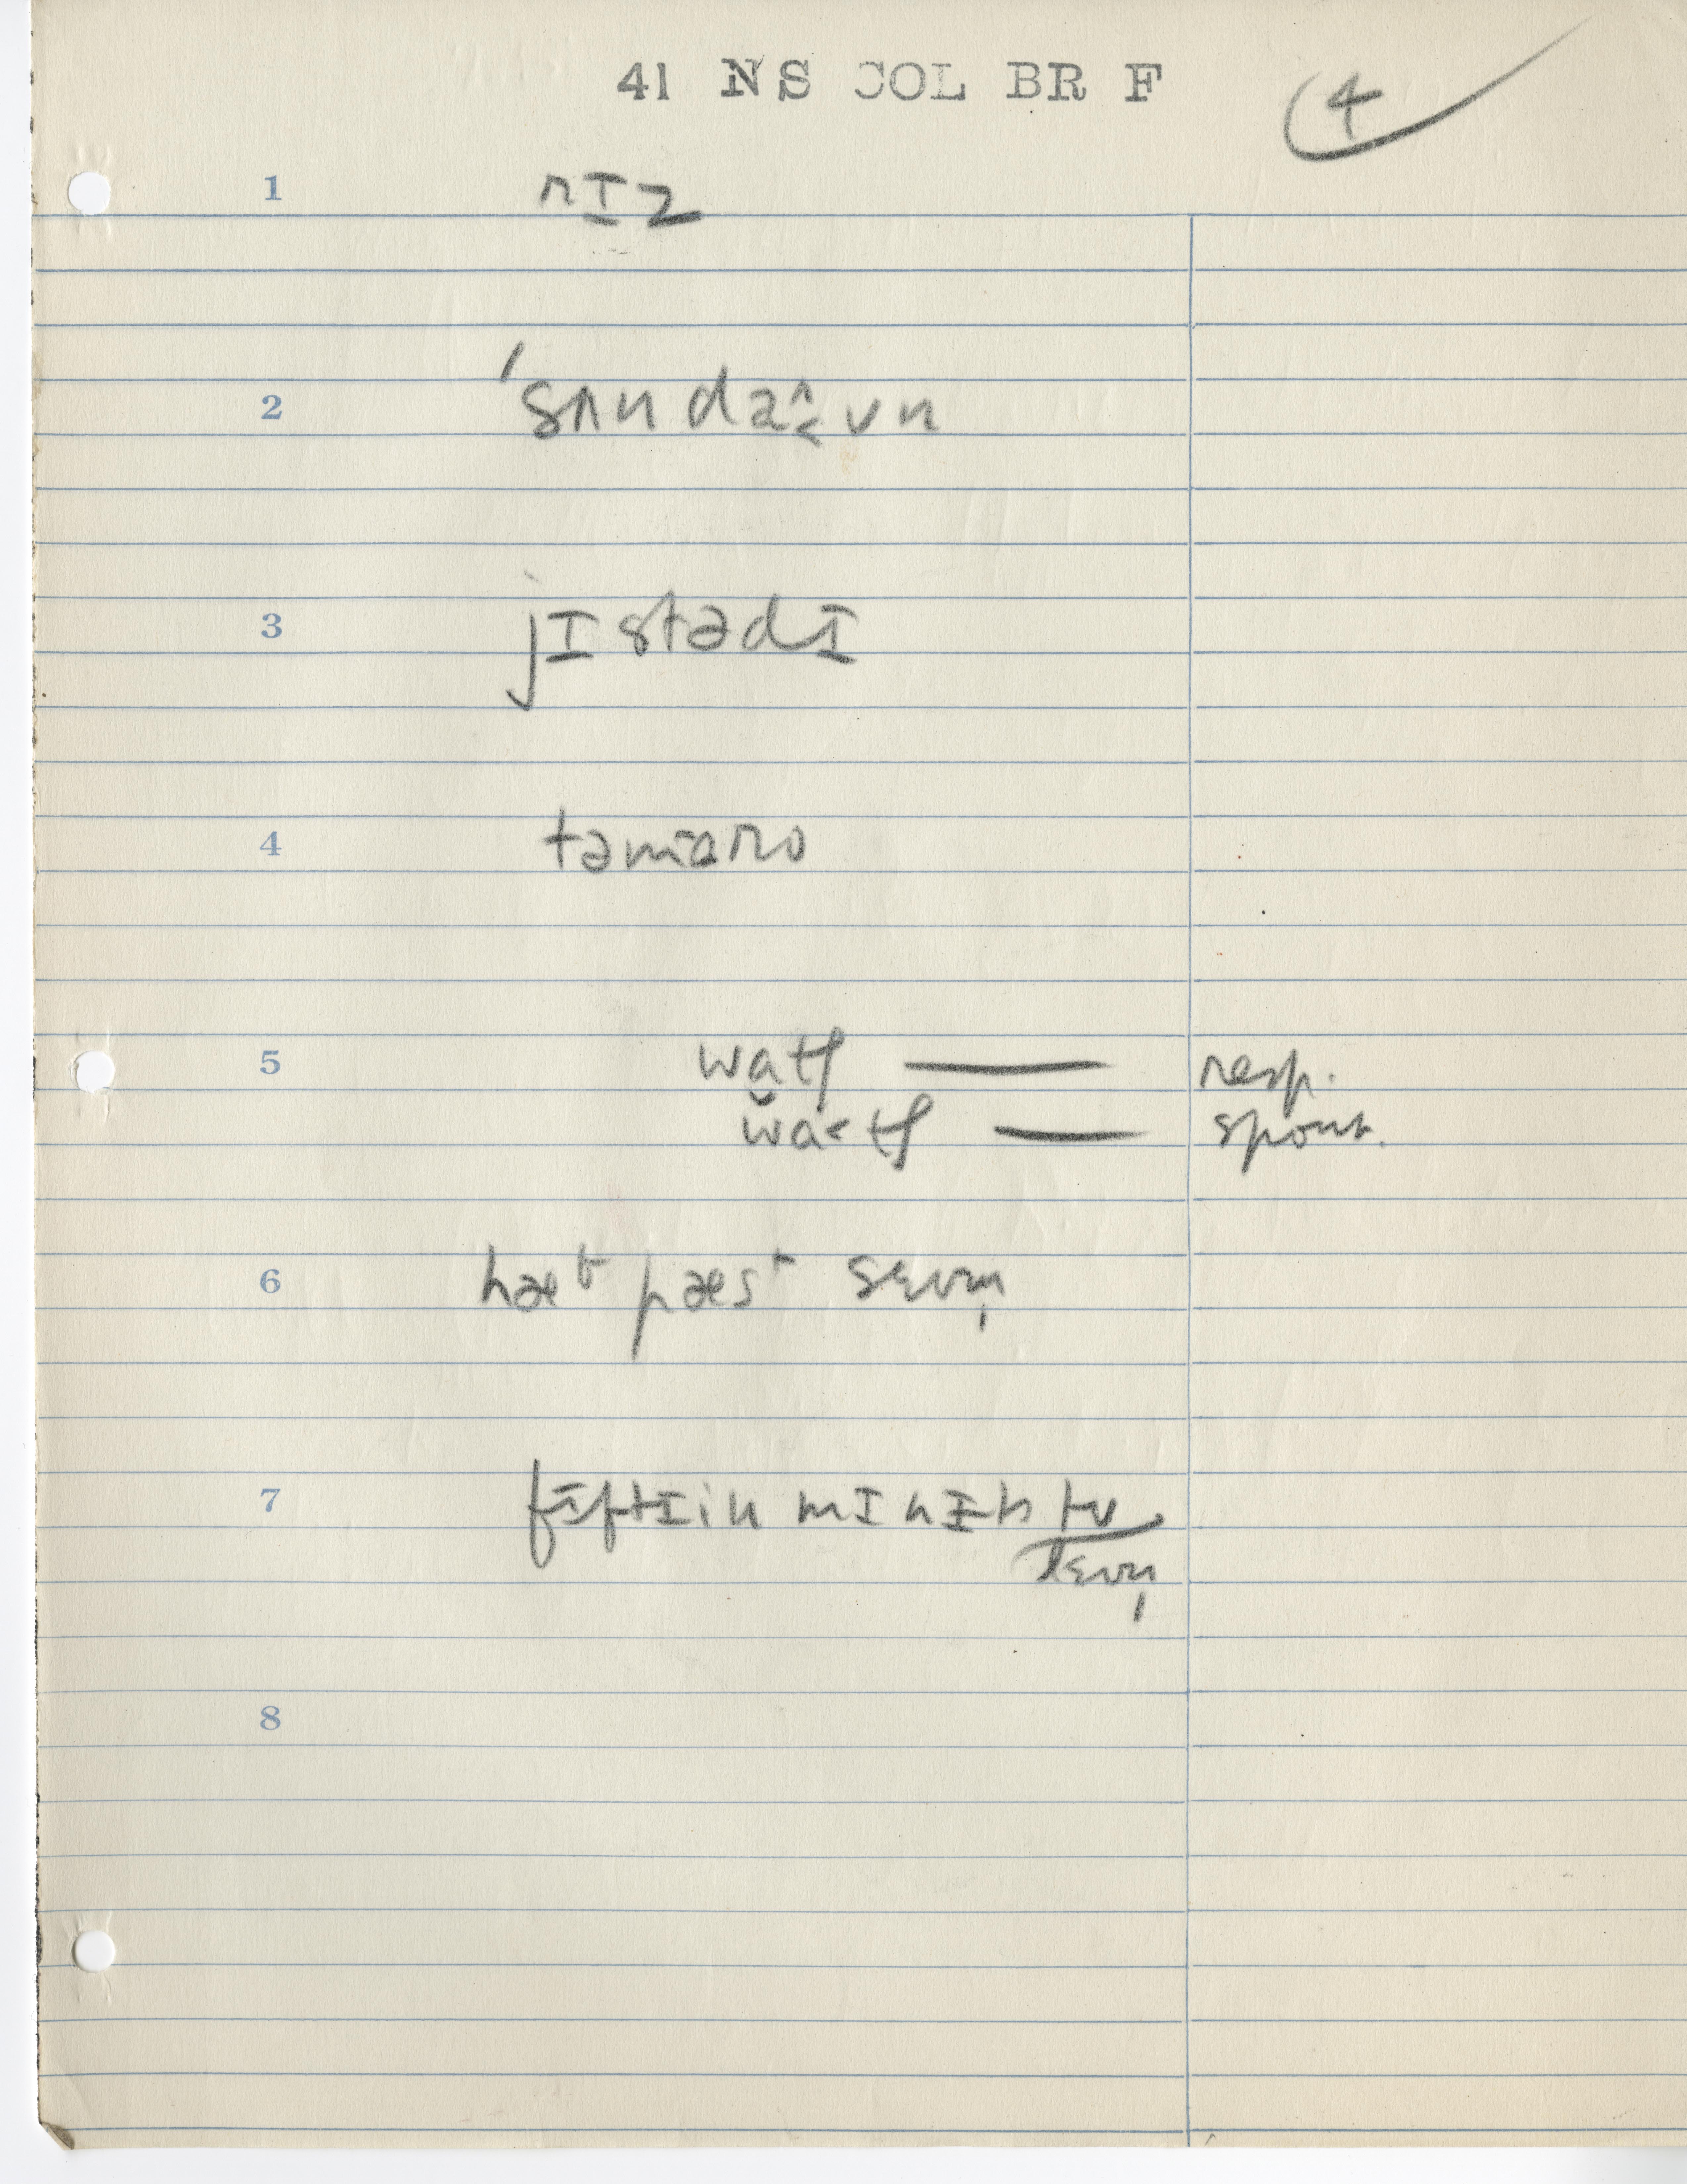 41 NS COL BR F
4
1 rɪz
2 ˈsʌndaᶺ̰ʊn
3 jɪstədɪ
4 təmɑro
5 wɑtʃ — resp.
wɑ˂tʃ — spont.
6 hæᵗ pæsᵗ sɛvm̩
7 fɪftɪin mɪnɪts tʊ
lɛvn̩
8